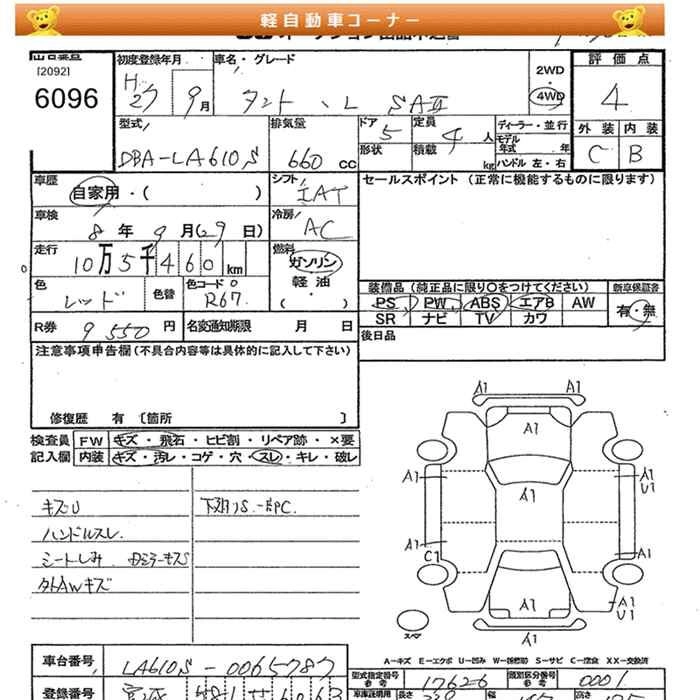 軽自動車コーナー
[2092]
6096
初度登録年月
H27 9月
車名・グレード
タント、L SAⅡ
2WD
・
4WD
評価点
4
外装 内装
C B
型式
DBA-LA610S
排気量
660 cc
ドア 5
形状
定員 4 人
積載 kg
ディーラー・並行
モデル年式 年
ハンドル 左・右
車歴
自家用・( )
シフト IAT
セールスポイント (正常に機能するものに限ります)
車検
8年 9月(29日)
冷房 AC
走行
10万5千460km
燃料
ガソリン
軽油
( )
色
レッド
色替
色コード
R67
装備品(純正品に限り○をつけてください)
PS PW ABS エアB AW
SR ナビ TV カワ
新車保証書
有・無
R券 9550円
名変通知期限 月 日
後日品
注意事項申告欄(不具合内容等は具体的に記入して下さい)
修復歴 有 〔箇所 〕
検査員記入欄
FW キズ・飛石・ヒビ割・リペア跡・×要
内装 キズ・汚レ・コゲ・穴・スレ・キレ・破レ
キズU
ハンドルスレ
シートしみ
外AWキズ
A1 A1
A1
A1
A1 A1
U1
A1
C1 A1
A1
U1
A1
A1
スペア
A-キズ E-エクボ U-凹み W-補修跡 S-サビ C-腐食 XX-交換済
車台番号
LA610S-0065787
型式指定番号
参考
17626
類別区分番号
参考
0001
登録番号
車庫証明用
参考
長さ
幅
高さ